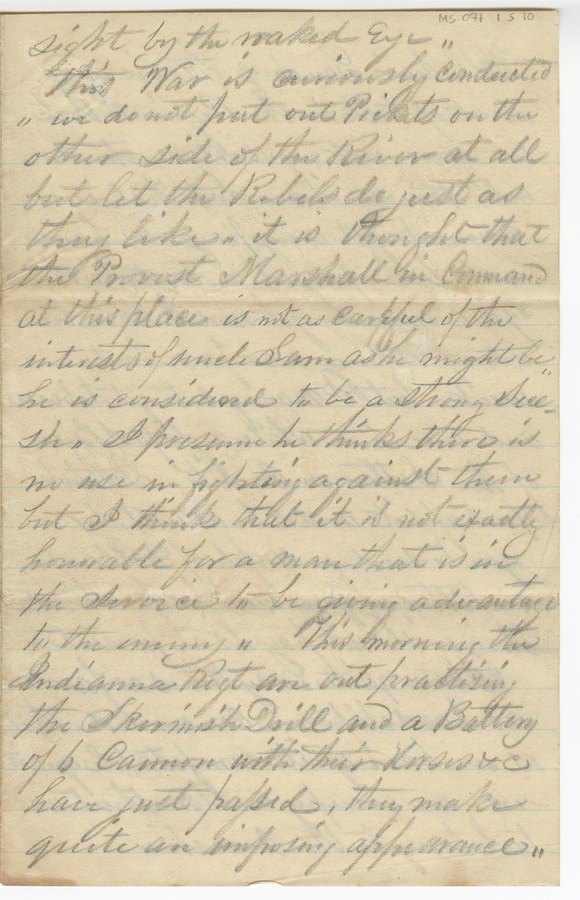 MS 071 1 5 10
sight by the naked Eye „
"This War is curiously conducted
„ we do not put out Pickets on the
other side of the River at all
but let the Rebels do just as
they like „ it is thought that
the Provost Marshall in Command
at this place is not as careful of the
interests of uncle Sam as he might be
he is considered to be a strong "Sece-
sh „ I presume he thinks there is
no use in fighting against them
but I think that it is not exactly
honorable for a man that is in
the Service to be giving advantage
to the enemy „ This morning the
Indianna Regt are out practising
the Skermish Drill and a Battery
of 6 Cannon with their Horses &c
have just passed, they make
quite an imposing appearance „